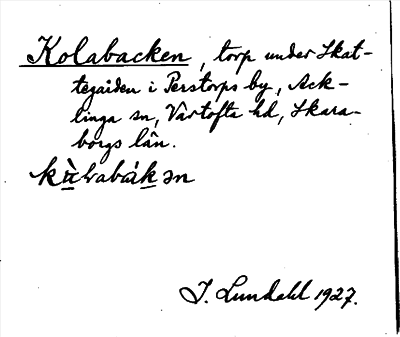 Kolabacken, torp under Skat-
tegården i Perstorps by, Ack-
linga sn, Vartofta hd, Skara-
borgs län.
kùlvabákən
J. Lundahl 1927.